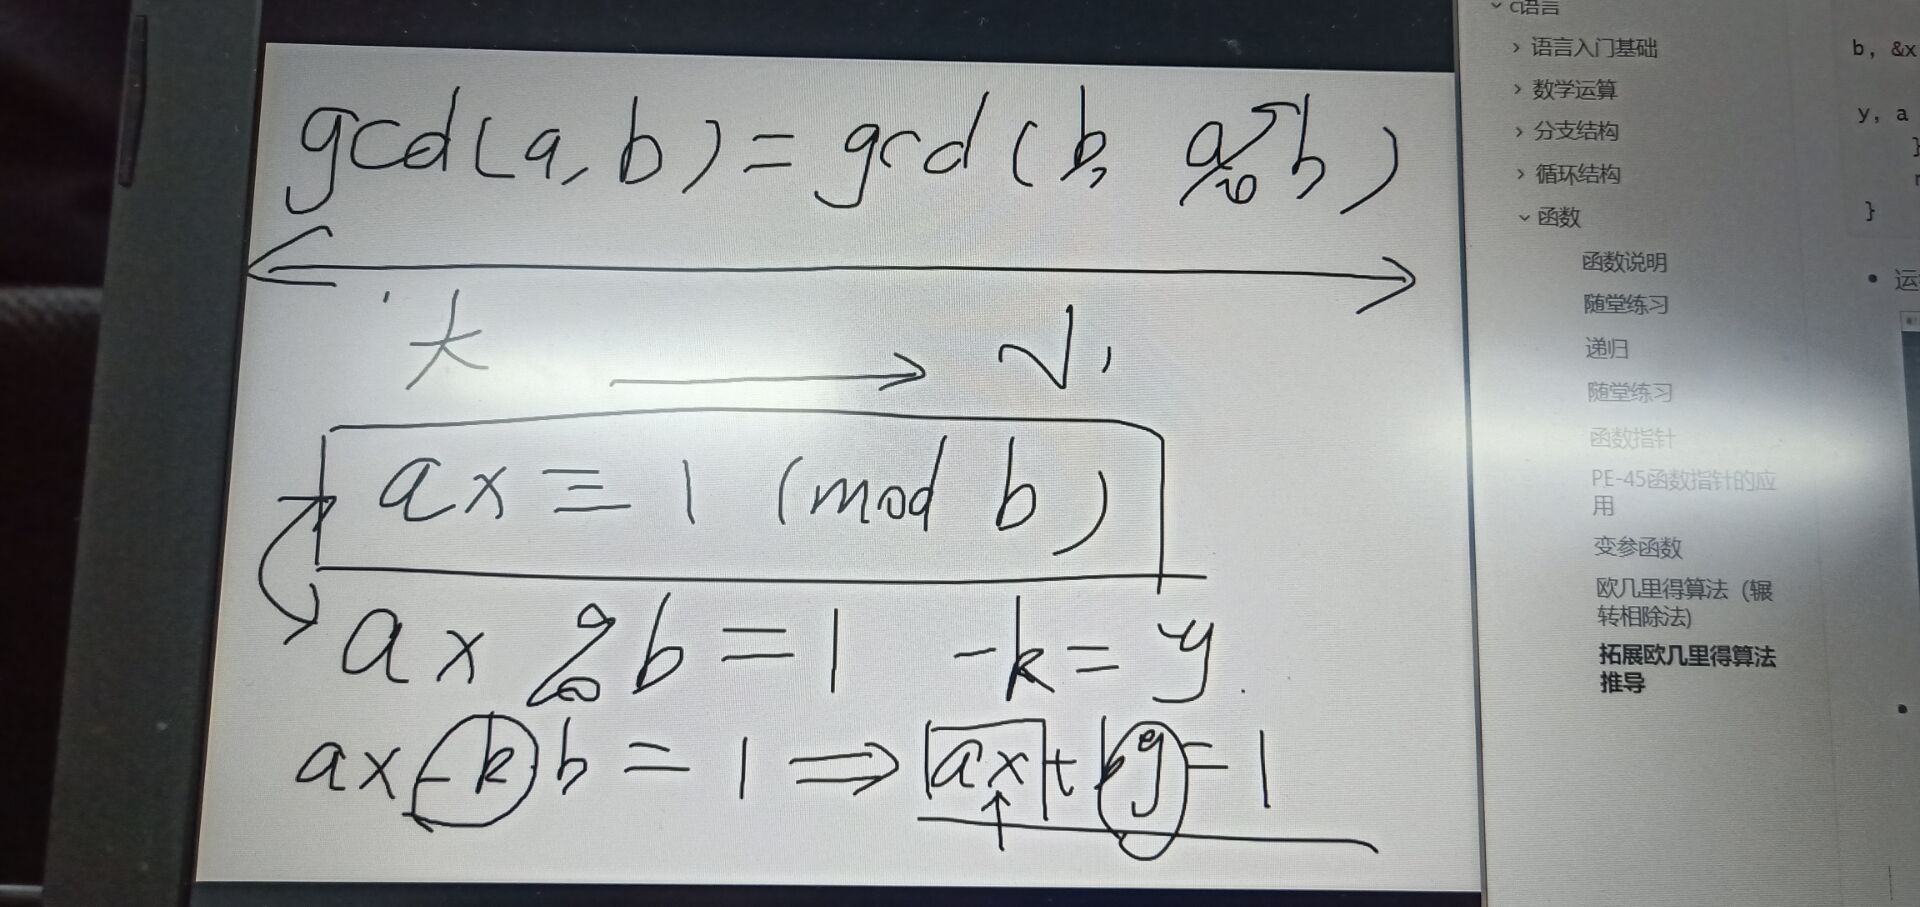 gcd(a, b) = gcd(b, a%b)
大 → 小
ax ≡ 1 (mod b)
ax % b = 1 -k = y
ax - kb = 1 ⇒ ax + by = 1
c语言
语言入门基础
数学运算
分支结构
循环结构
函数
函数说明
随堂练习
递归
随堂练习
函数指针
PE-45函数指针的应
用
变参函数
欧几里得算法（辗
转相除法)
拓展欧几里得算法
推导
b, &x
y, a
}
}
运